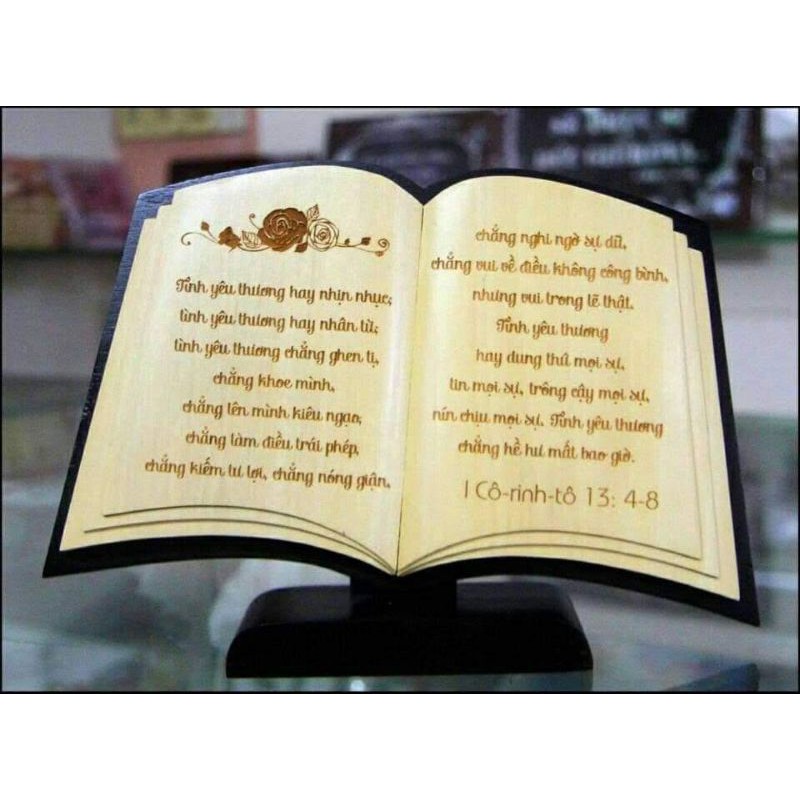 Tình yêu thương hay nhịn nhục;
tình yêu thương hay nhân từ;
tình yêu thương chẳng ghen tị,
chẳng khoe mình,
chẳng lên mình kiêu ngạo,
chẳng làm điều trái phép,
chẳng kiếm tư lợi, chẳng nóng giận,
chẳng nghi ngờ sự dữ,
chẳng vui về điều không công bình,
nhưng vui trong lẽ thật.
Tình yêu thương
hay dung thứ mọi sự,
tin mọi sự, trông cậy mọi sự,
nín chịu mọi sự. Tình yêu thương
chẳng hề hư mất bao giờ.
I Cô-rinh-tô 13: 4-8